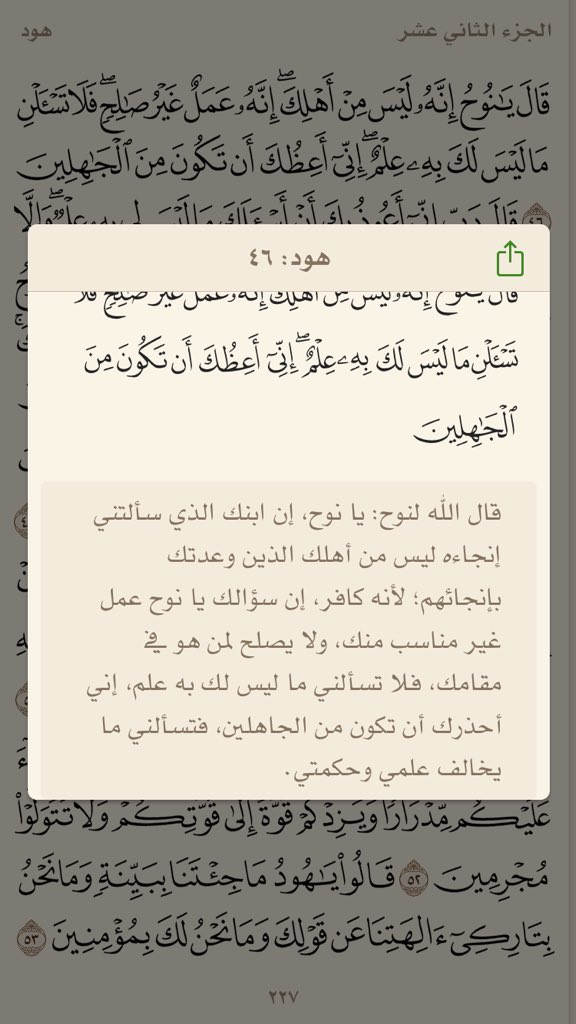 الجزء الثاني عشر
هود
قَالَ يَـٰنُوحُ إِنَّهُۥ لَيْسَ مِنْ أَهْلِكَ ۖ إِنَّهُۥ عَمَلٌ غَيْرُ صَـٰلِحٍ ۖ فَلَا تَسْـَٔلْنِ
مَا لَيْسَ لَكَ بِهِۦ عِلْمٌ ۖ إِنِّىٓ أَعِظُكَ أَن تَكُونَ مِنَ ٱلْجَـٰهِلِينَ
٤٦ قَالَ رَبِّ إِنِّىٓ أَعُوذُ بِكَ أَنْ أَسْـَٔلَكَ مَا لَيْسَ لِى بِهِۦ عِلْمٌ ۖ وَإِلَّا
هود: ٤٦
قَالَ يَـٰنُوحُ إِنَّهُۥ لَيْسَ مِنْ أَهْلِكَ ۖ إِنَّهُۥ عَمَلٌ غَيْرُ صَـٰلِحٍ ۖ فَلَا
تَسْـَٔلْنِ مَا لَيْسَ لَكَ بِهِۦ عِلْمٌ ۖ إِنِّىٓ أَعِظُكَ أَن تَكُونَ مِنَ
ٱلْجَـٰهِلِينَ
قال الله لنوح: يا نوح، إن ابنك الذي سألتني
إنجاءه ليس من أهلك الذين وعدتك
بإنجائهم؛ لأنه كافر، إن سؤالك يا نوح عمل
غير مناسب منك، ولا يصلح لمن هو في
مقامك، فلا تسألني ما ليس لك به علم، إني
أحذرك أن تكون من الجاهلين، فتسألني ما
يخالف علمي وحكمتي.
عَلَيْكُم مِّدْرَارًا وَيَزِدْكُمْ قُوَّةً إِلَىٰ قُوَّتِكُمْ وَلَا تَتَوَلَّوْا۟
مُجْرِمِينَ ٥٢ قَالُوا۟ يَـٰهُودُ مَا جِئْتَنَا بِبَيِّنَةٍ وَمَا نَحْنُ
بِتَارِكِىٓ ءَالِهَتِنَا عَن قَوْلِكَ وَمَا نَحْنُ لَكَ بِمُؤْمِنِينَ ٥٣
٢٢٧